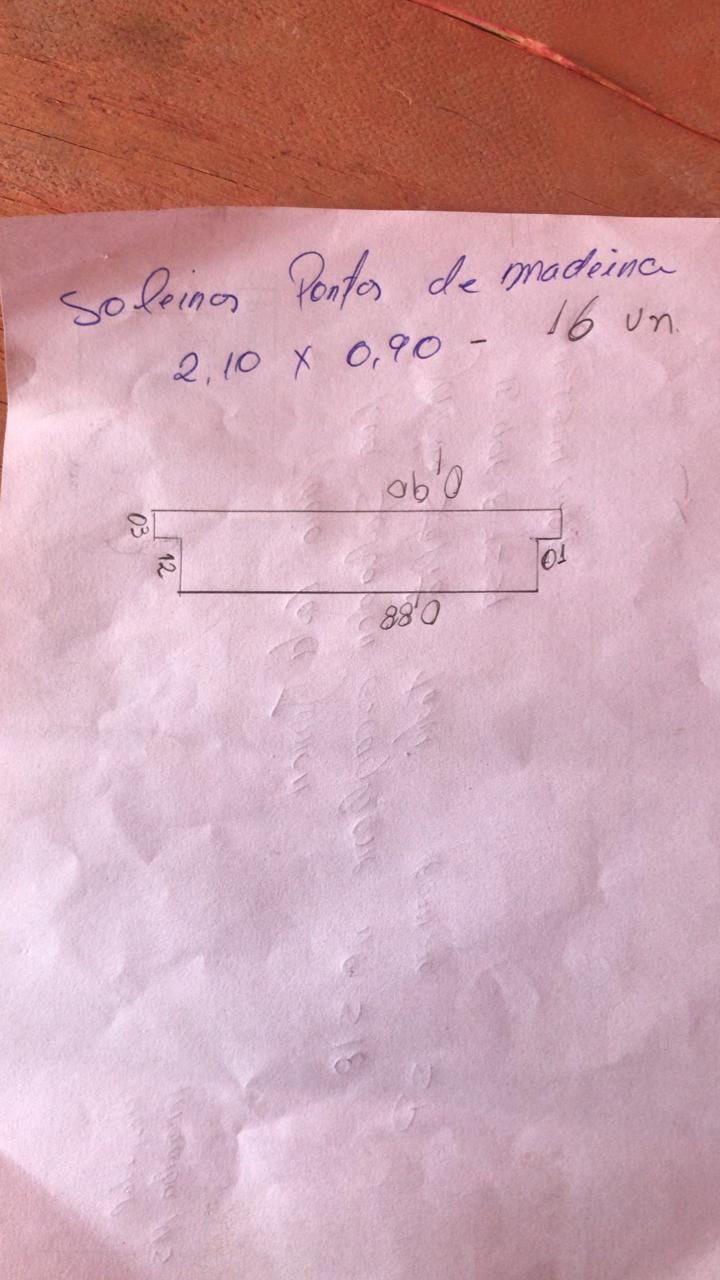 Soleiras Portas de madeira
2,10 x 0,90 - 16 un.
0,90
03
12
01
0,88